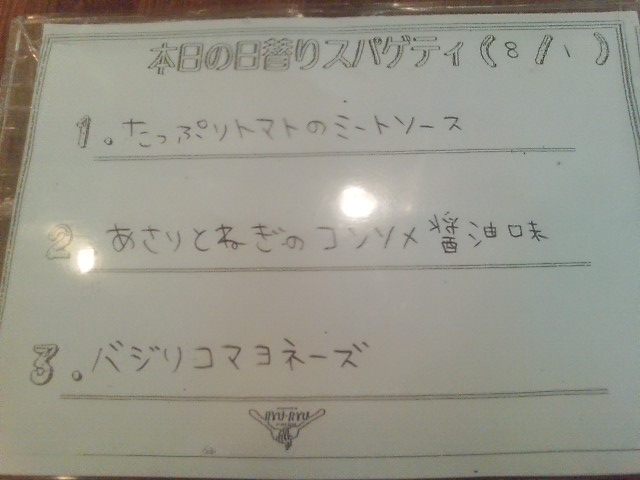 本日の日替りスパゲティ(8/1)
1.たっぷりトマトのミートソース
2.あさりとねぎのコンソメ醤油味
3.バジリコマヨネーズ
JIYU-JIYU